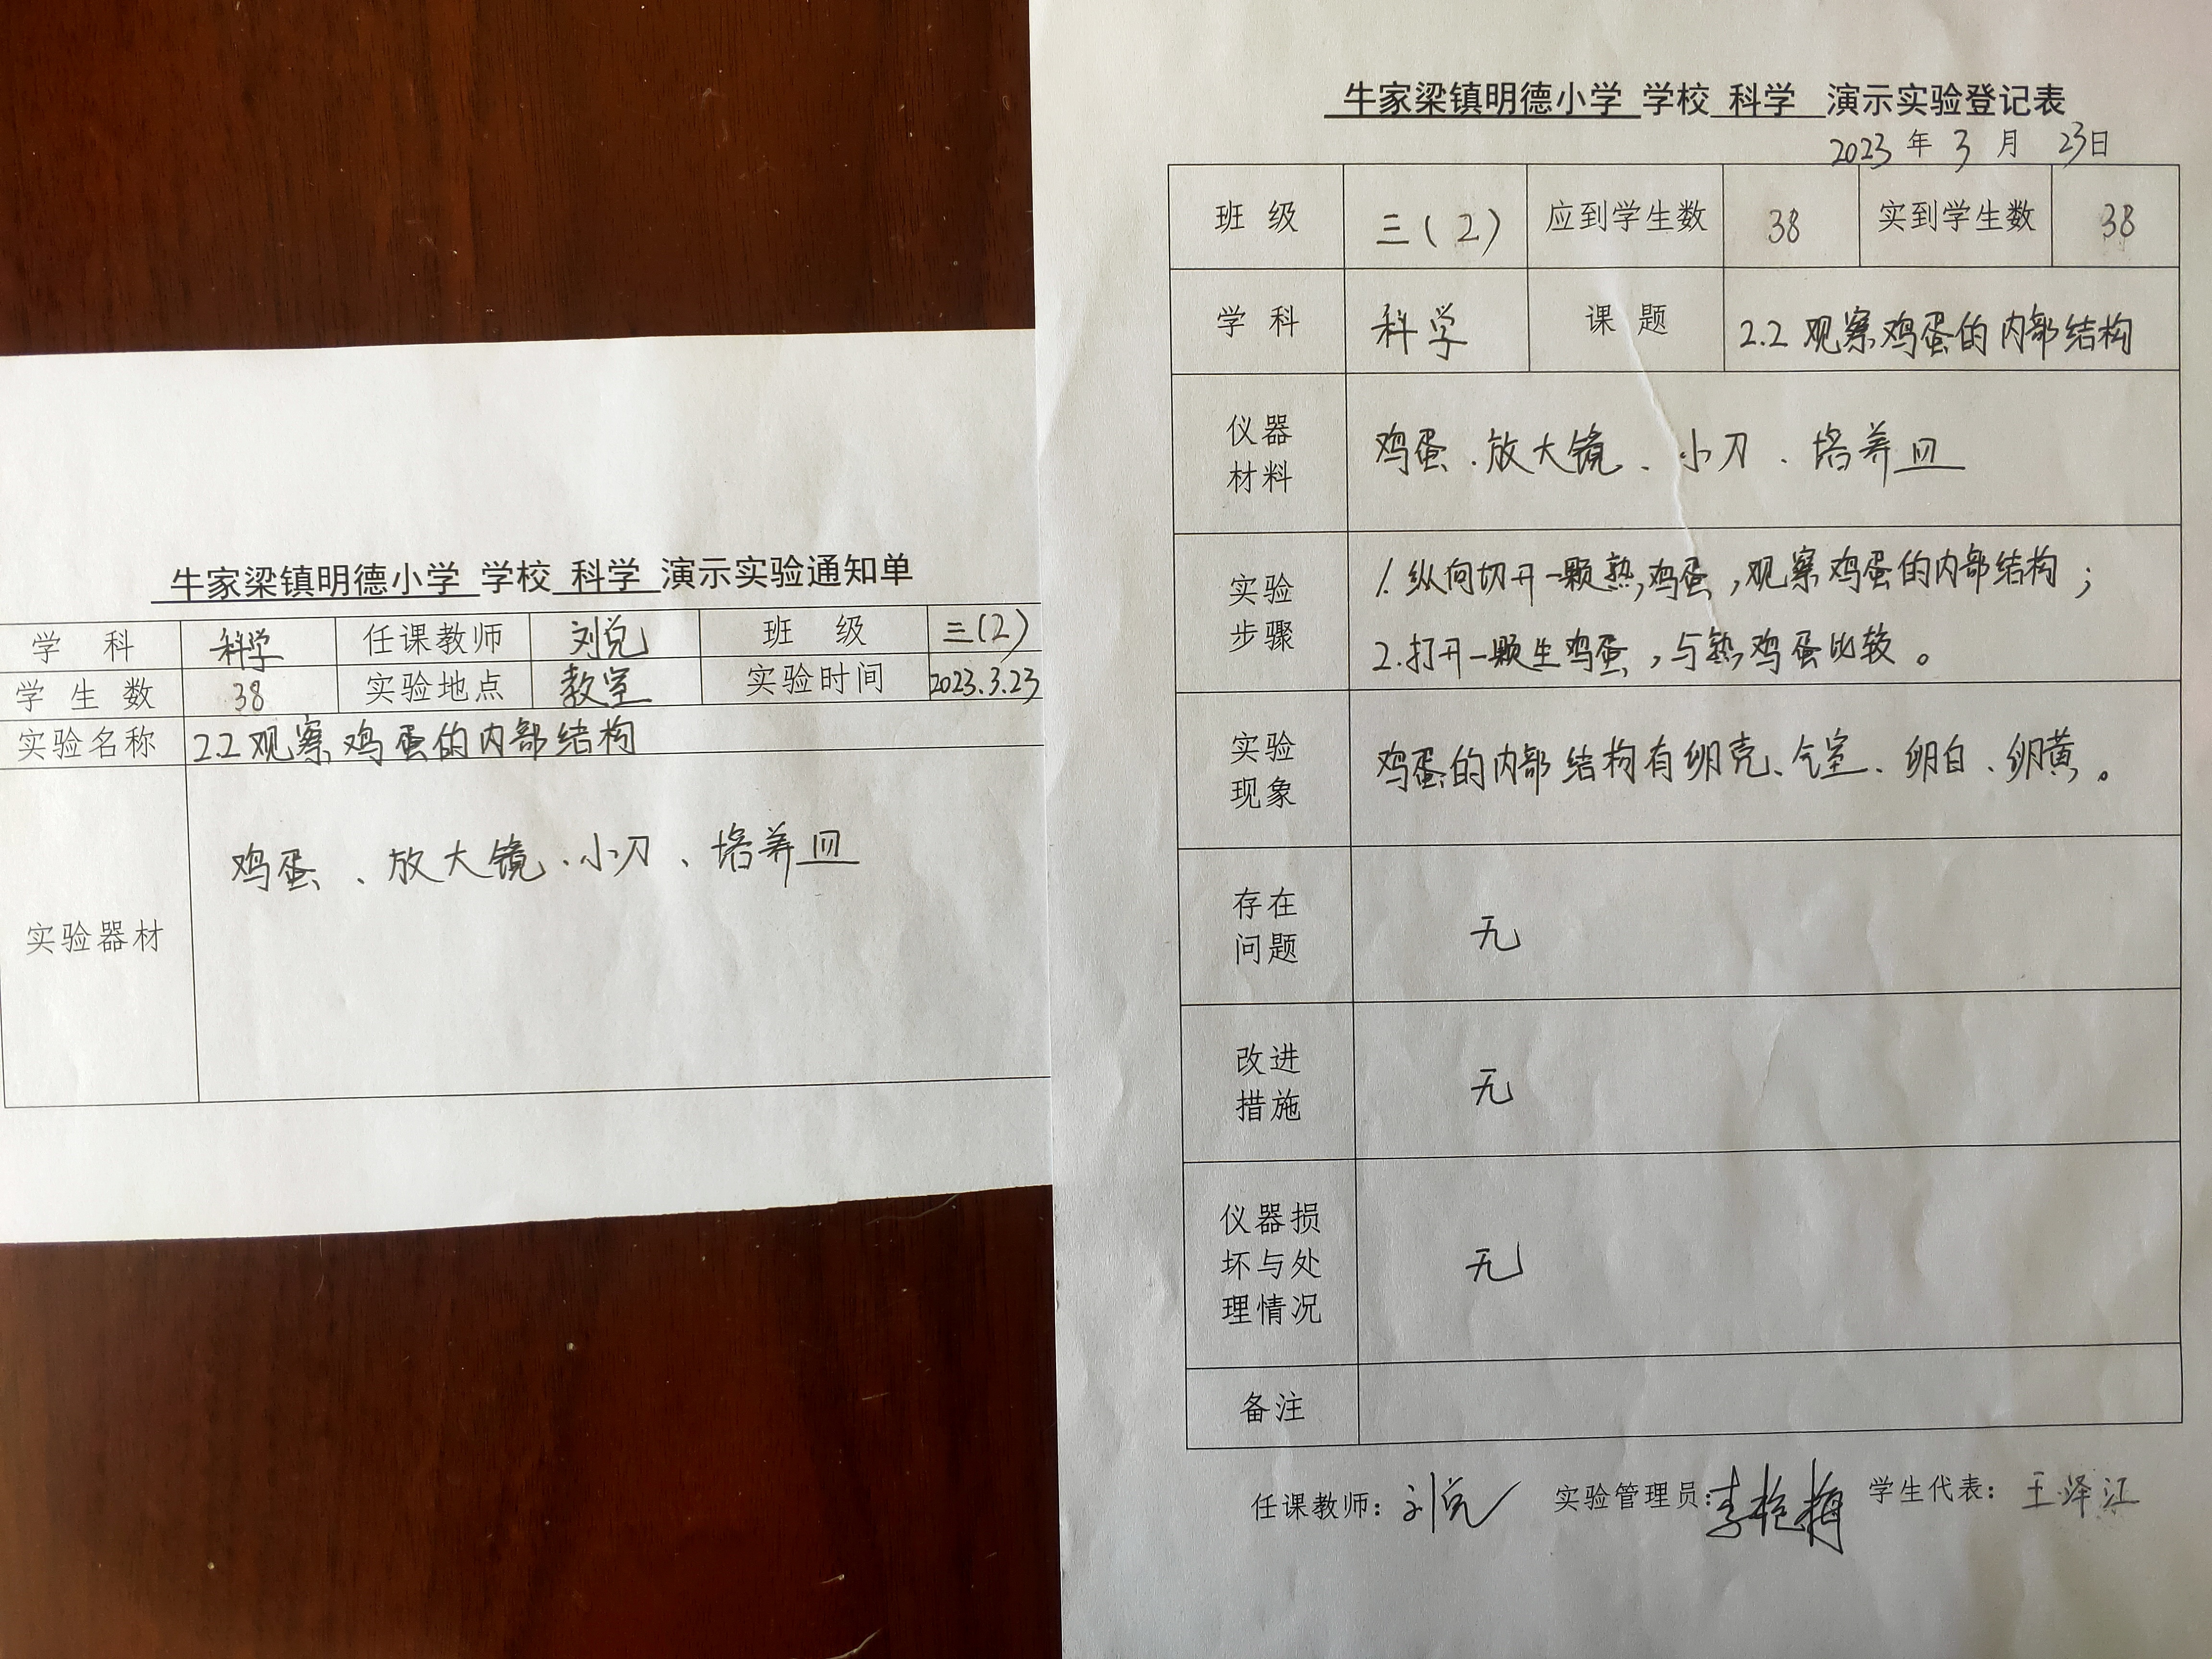 牛家梁镇明德小学 学校 科学 演示实验通知单
学 科 科学 任课教师 刘兑 班 级 三(2)
学 生 数 38 实验地点 教室 实验时间 2023.3.23
实验名称 2.2 观察鸡蛋的内部结构
实验器材 鸡蛋、放大镜、小刀、培养皿
牛家梁镇明德小学 学校 科学 演示实验登记表
2023 年 3 月 23日
班 级 三(2) 应到学生数 38 实到学生数 38
学 科 科学 课 题 2.2 观察鸡蛋的内部结构
仪器
材料
鸡蛋、放大镜、小刀、培养皿
实验
步骤
1.纵向切开一颗熟鸡蛋,观察鸡蛋的内部结构;
2.打开一颗生鸡蛋,与熟鸡蛋比较。
实验
现象
鸡蛋的内部结构有卵壳、气室、卵白、卵黄。
存在
问题
无
改进
措施
无
仪器损
坏与处
理情况
无
备注
任课教师: 刘兑 实验管理员: 学生代表: 王泽江